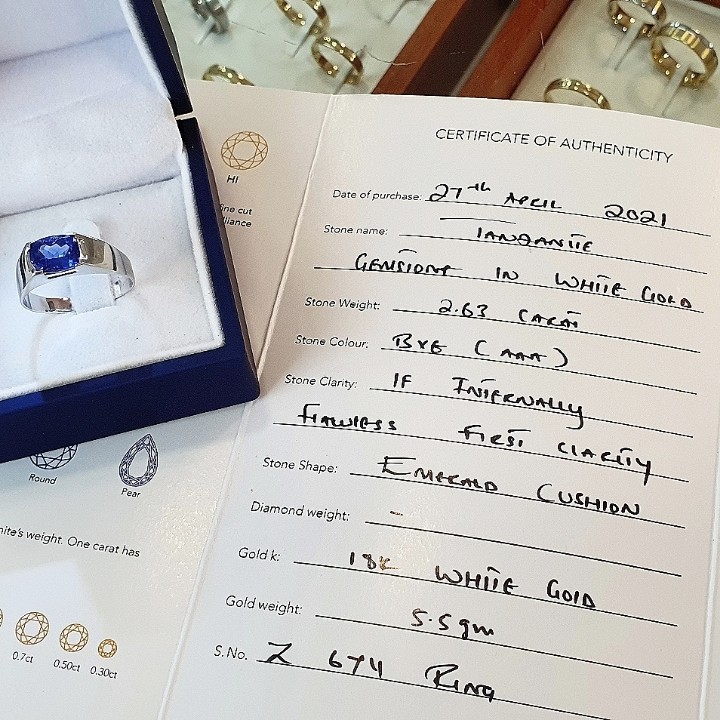 HI
ine cut
lliance
Round
Pear
nite's weight. One carat has
0.7ct 0.50ct 0.30ct
CERTIFICATE OF AUTHENTICITY
Date of purchase: 27th APRIL 2021
Stone name: TANZANITE
GEMSTONE IN WHITE GOLD
Stone Weight: 2.63 CARAT
Stone Colour: BVE (AAA)
Stone Clarity: IF INTERNALLY
FLAWLESS FIRST CLARITY
Stone Shape: EMERALD CUSHION
Diamond weight: -
Gold k: 18K WHITE GOLD
Gold weight: 5.5gm
S.No. Z 674 RING